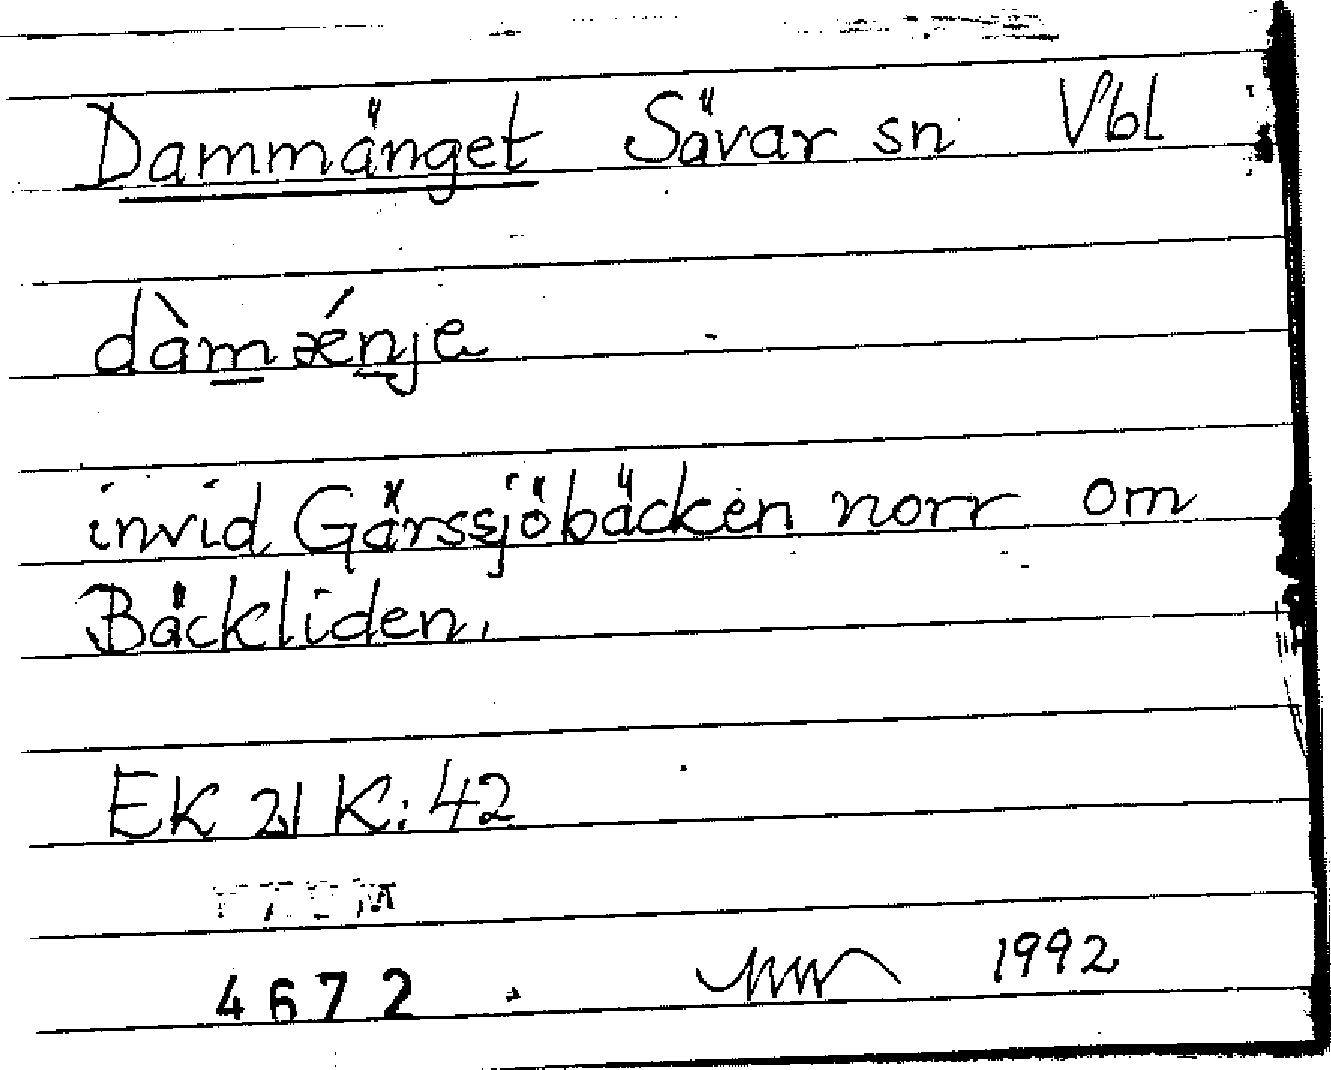 Dammänget Sävar sn Vbl
dàmǽnje
invid Gärssjöbäcken norr om
Bäckliden.
EK 21 K: 42
4672
1992